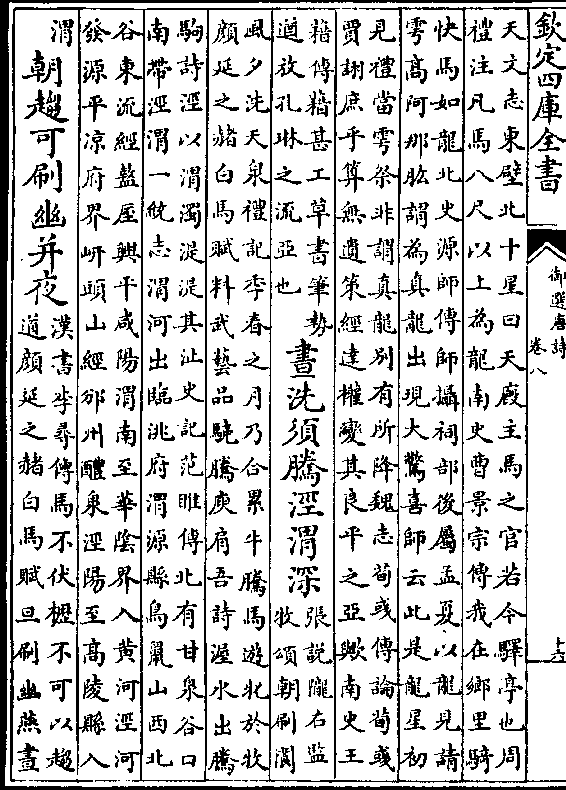 欽定四庫全書
御選唐詩
卷八
十六
天文志東壁北十星曰天廄主馬之官若今驛亭也周
禮注凡馬八尺以上為龍南史曹景宗傳我在鄉里騎
快馬如龍北史源師傳師攝祠部後屬孟夏以龍見請
雩高阿那肱謂為真龍出現大驚喜師云此是龍星初
見禮當雩祭非謂真龍别有所降魏志荀彧傳論荀彧
賈詡庶乎算無遺策經達權變其良平之亞歟南史王
籍傳籍甚工草書筆勢
遒放孔琳之流亞也
晝洗須騰涇渭深
張説隴右監
牧頌朝刷閬
風夕洗天泉禮記季春之月乃合累牛騰馬遊牝於牧
顔延之赭白馬賦料武藝品驍騰庾肩吾詩渥水出騰
駒詩涇以渭濁湜湜其沚史記范雎傳北有甘泉谷口
南帶涇渭一統志渭河出臨洮府渭源縣鳥鼠山西北
谷東流經盩厔興平咸陽渭南至華陰界入黄河涇河
發源平凉府界岍頭山經邠州醴泉涇陽至高陵縣入
渭
朝趨可刷幽并夜
漢書李尋傳馬不伏櫪不可以趨
道顔延之赭白馬賦旦刷幽燕晝